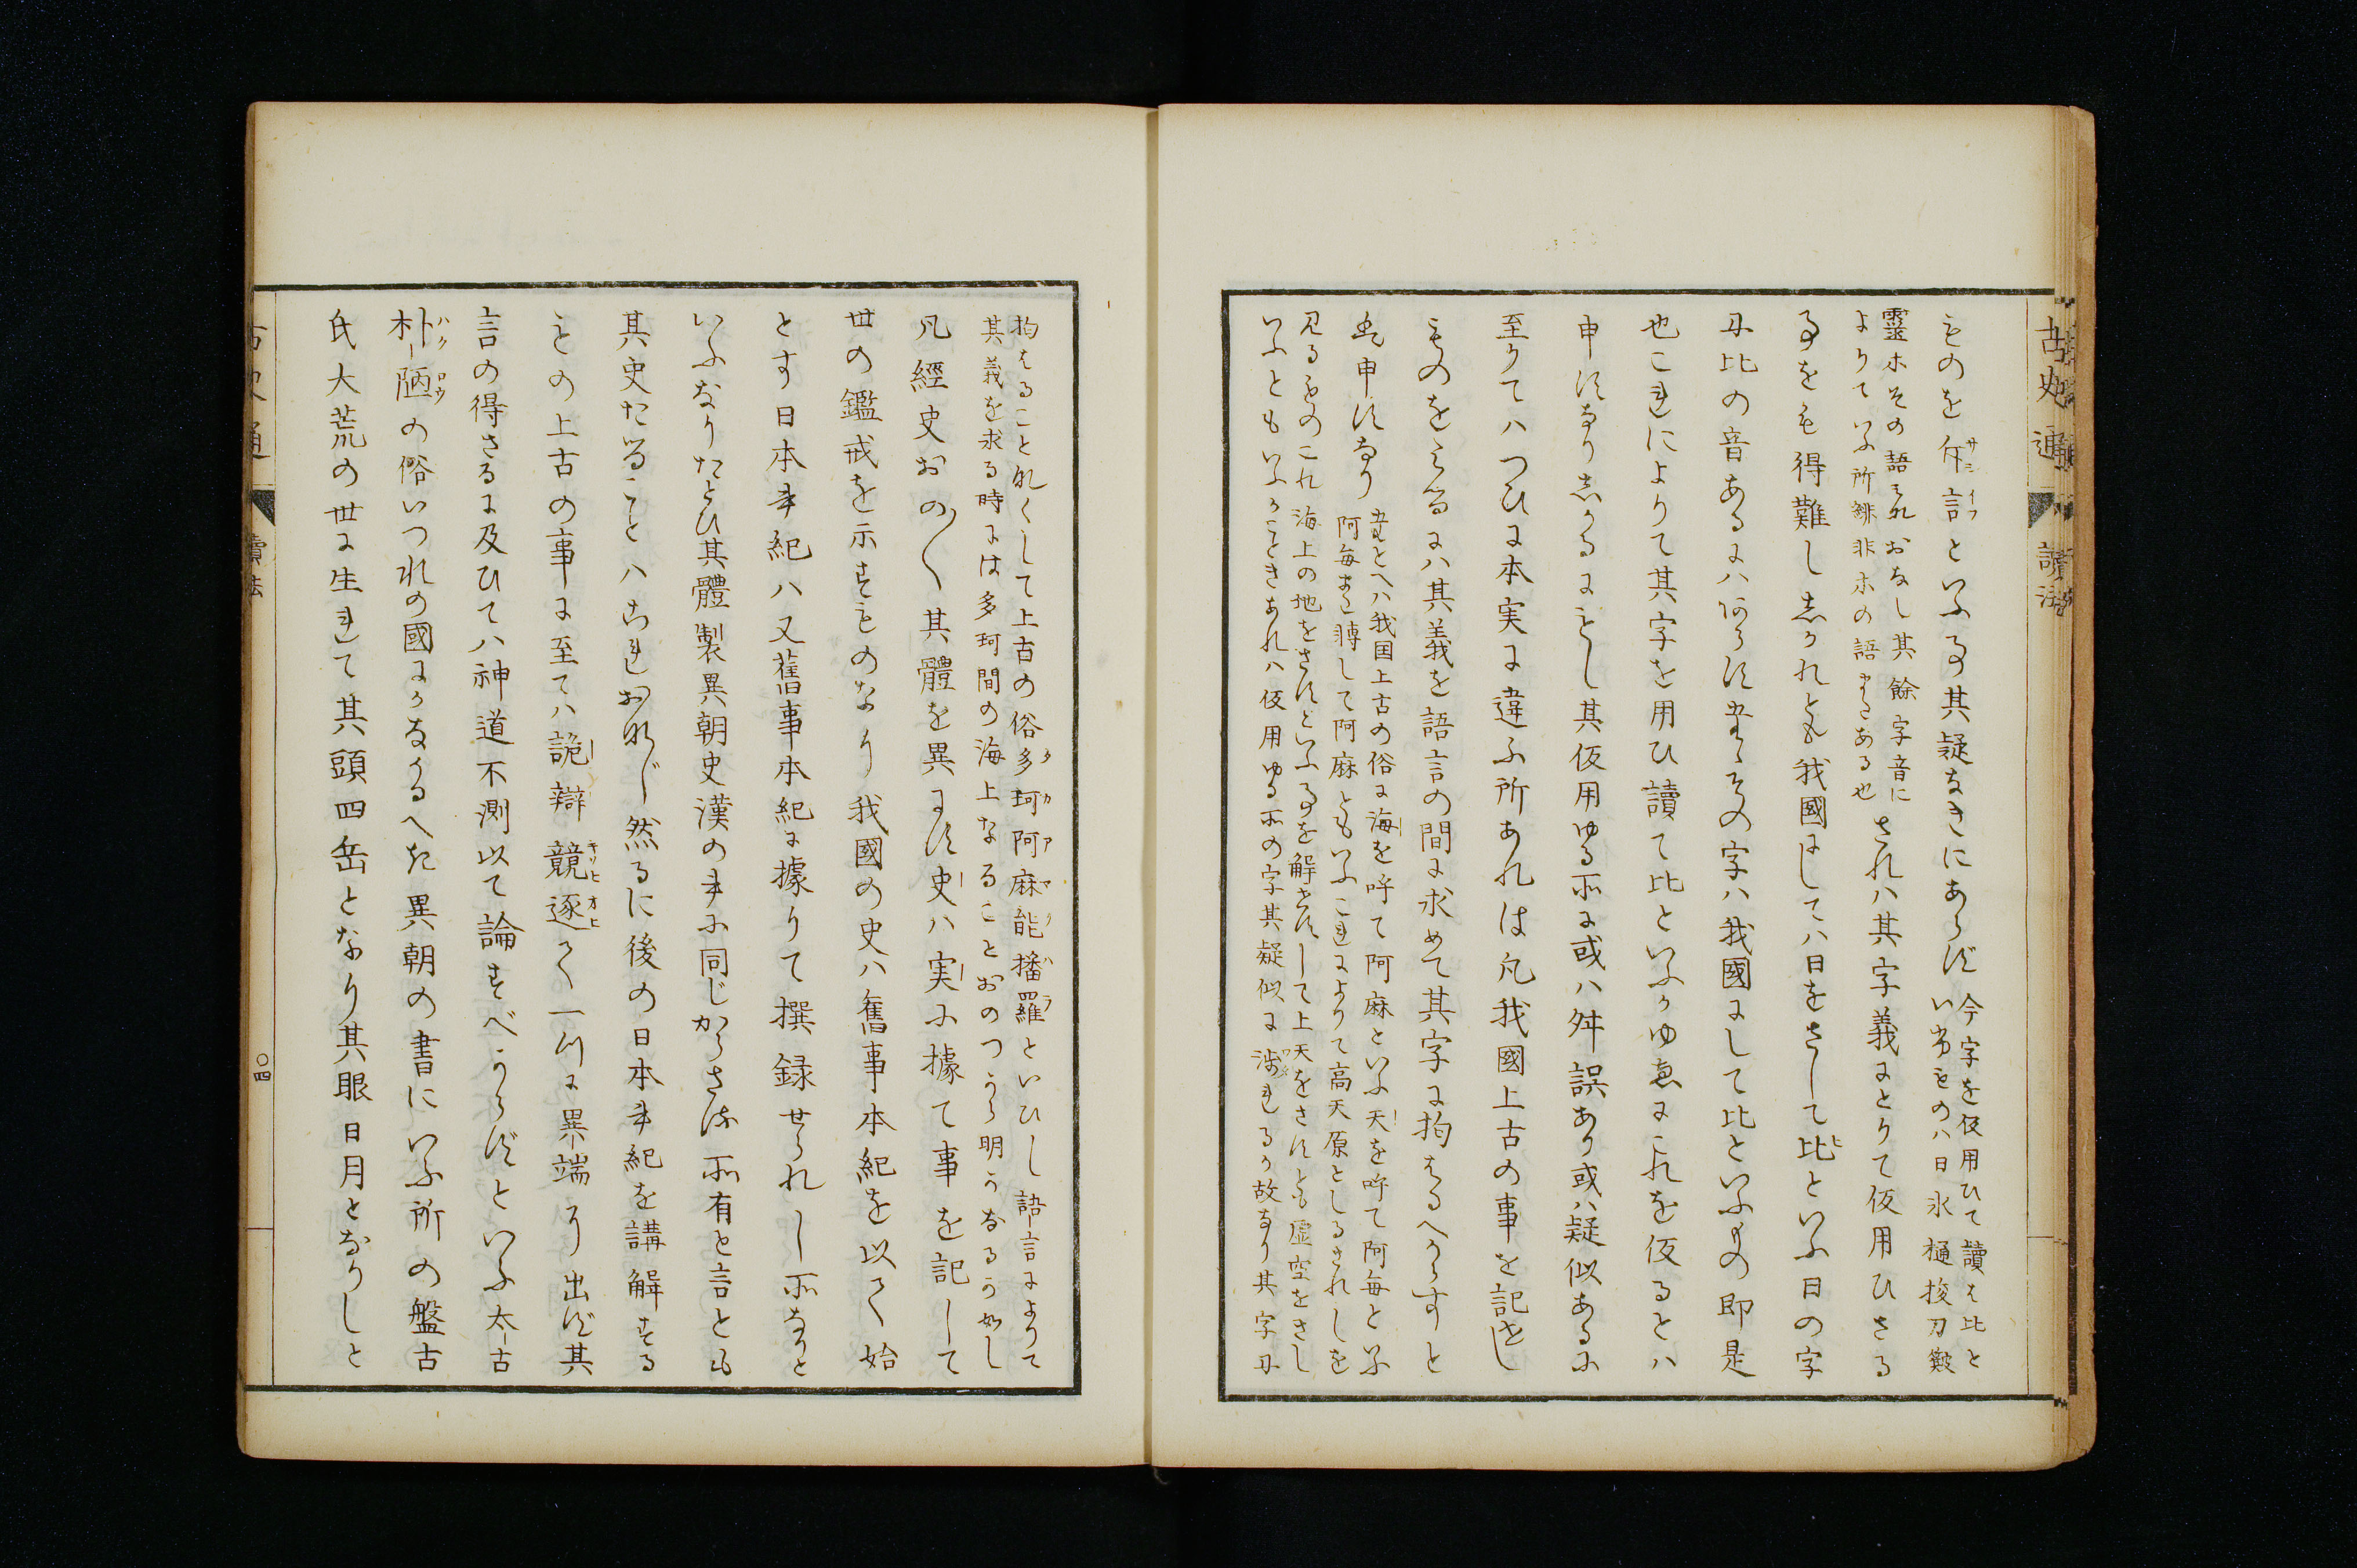 古史通 讀法
ものを斥言といふ事其疑なきにあらず今字を仮用ひて讀は比と
いふものハ日氷樋桵刀皺
靈ホその語みなおなし其餘字音に
よりていふ所緋非ホの語またある也されハ其字義によりて仮用ひさる
事をも得難ししかれとも我國にしてハ日をさして比といふ日の字
に比の音あるにハあらすまたその字ハ我國にして比といふもの即是
也これによりて其字を用ひ讀て比といふかゆゑにこれを仮るとハ
申すなりしかるにもし其仮用ゆる所に或ハ舛誤あり或ハ疑似あるに
至りてハつひに本実に違ふ所あれは凡我國上古の事を記せし
ものをみるにハ其義を語言の間に求めて其字に拘はるへからすと
ハ申すなりたとへハ我国上古の俗に海を呼て阿麻といふ天を呼て阿毎といふ
阿毎また轉して阿麻ともいふこれによりて高天原としるされしを
みるものこれ海上の地をさすといふ事を解せすして上天をさすとも虚空をさし
いふともいふかこときあれハ仮用ゆる所の字其疑似に渉れるか故なり其字に
拘はることなくして上古の俗多珂阿麻能播羅といひし語言によりて
其義を求る時には多珂間の海上なることおのつから明かなるか如し
凡經史おの〱其體を異にす史ハ実に據て事を記して
世の鑑戒を示すものなり我國の史ハ舊事本紀を以て始
とす日本紀ハ又舊事本紀に據りて撰録せられし所なりと
いふなりたとひ其體製異朝史漢の書に同じからさる所有と言とも
其史たることハこれおなじ然るに後の日本書紀を講解する
もの上古の事に至てハ詭辯競逐て一門に異端より出ず其
言の得さるに及ひてハ神道不測以て論すべからずといふ太古
朴陋の俗いつれの國にかなかるへき異朝の書にいふ所の盤古
氏大荒の世に生れて其頭四岳となり其眼日月となりしと
古史通 讀法 〇四